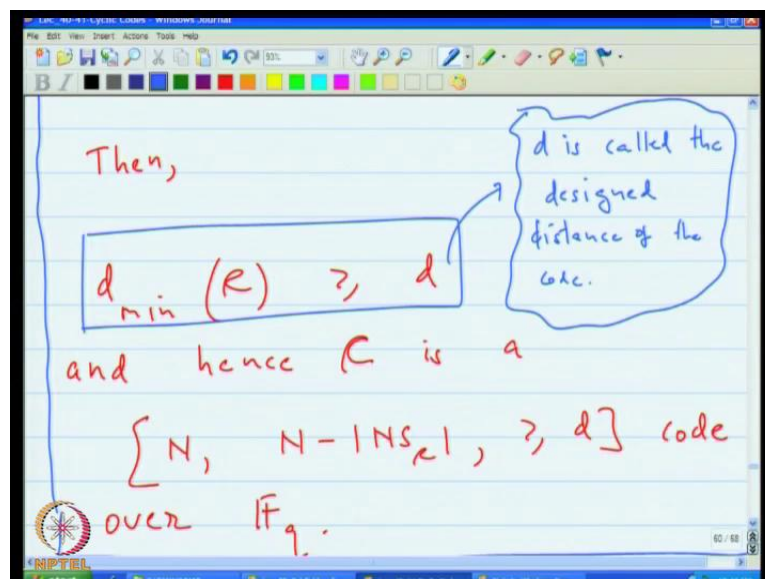 Lec_40-41-Cyclic Codes - Windows Journal
File Edit View Insert Actions Tools Help
93%
B I
Then,
d is called the
designed
distance of the
code.
d_min (C) ≥ d
and hence C is a
[N, N - |NS_C|, ≥ d] code
over F_q.
60 / 68
NPTEL